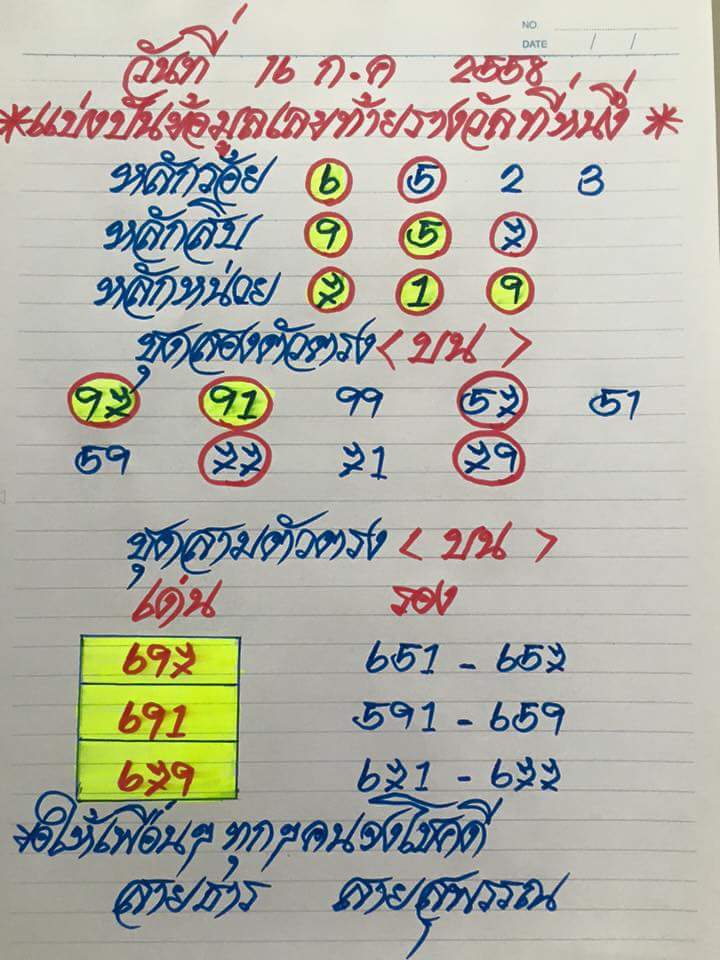 NO.
DATE / /
วันที่ 16 ก.ค 2558
*แบ่งปันข้อมูลเลขท้ายรางวัลที่หนึ่ง*
หลักร้อย 6 5 2 3
หลักสิบ 9 5 7
หลักหน่วย 7 1 9
ชุดสองตัวตรง < บน >
97 91 99 57 51
59 77 71 79
ชุดสามตัวตรง < บน >
เด่น รอง
697 651 - 657
691 591 - 659
679 671 - 677
*ให้เพื่อนๆทุกๆคนจงโชคดี
สายธาร สายสุพรรณ